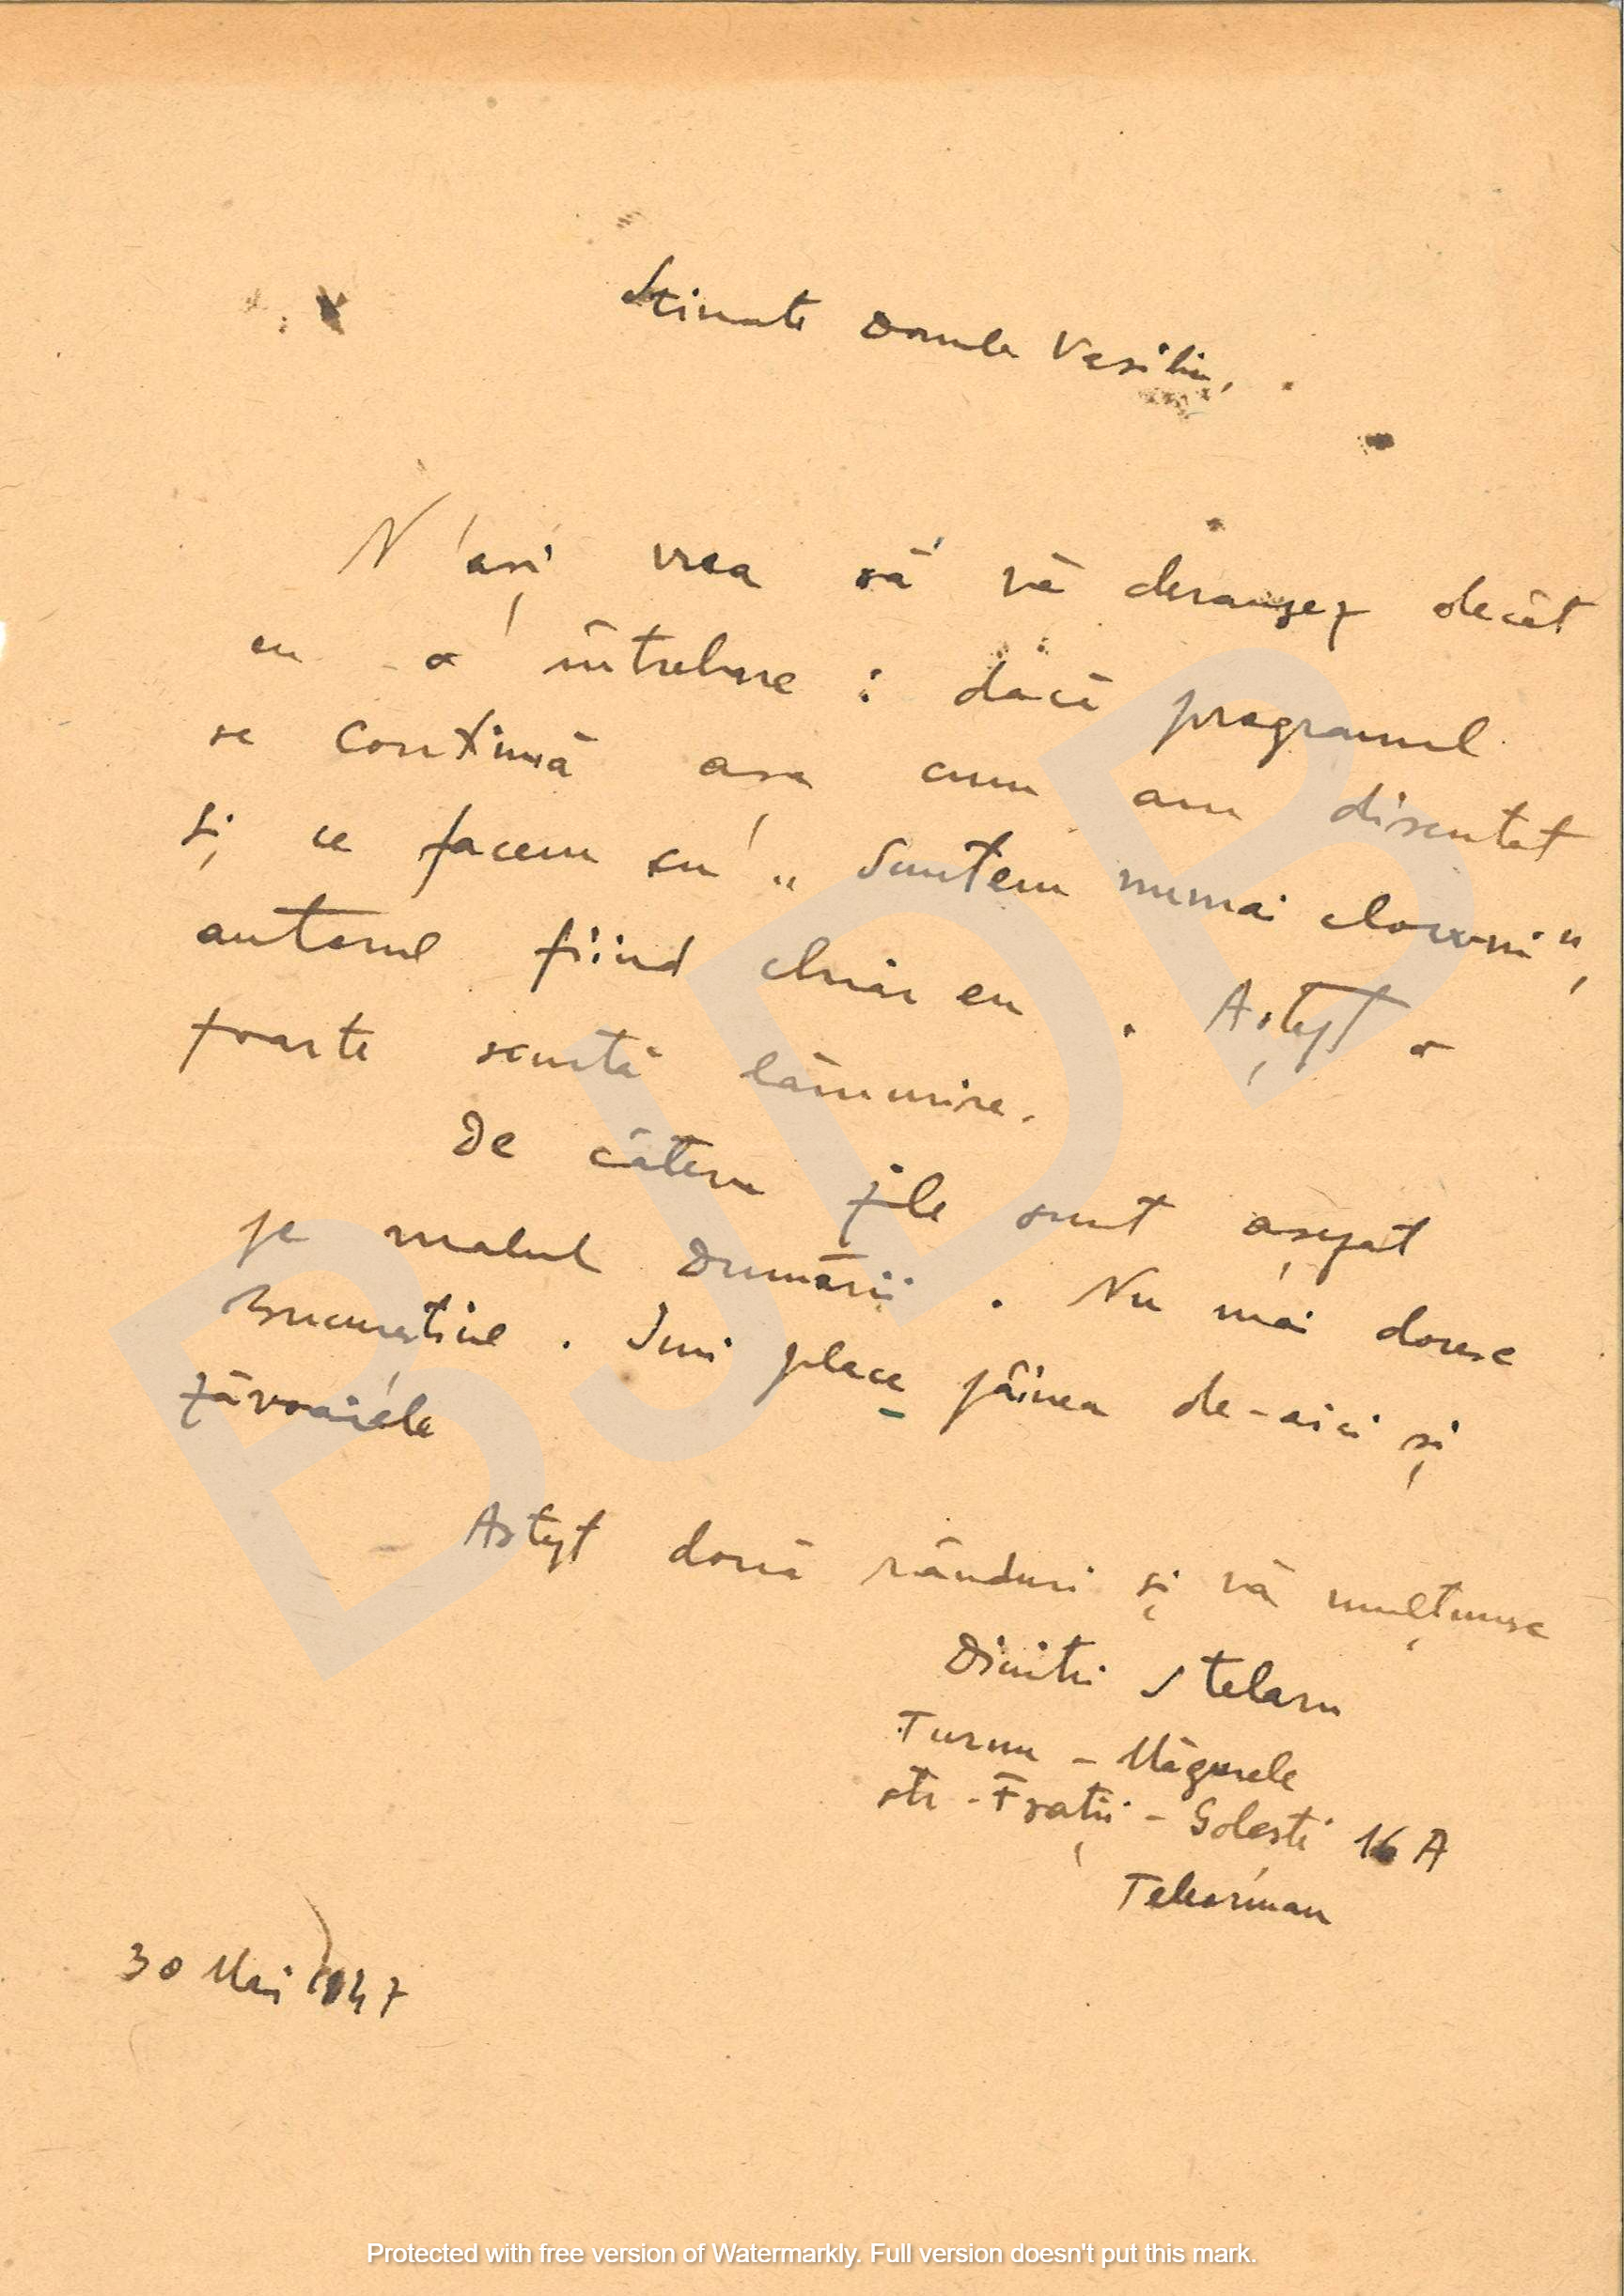 Stimate Domnule Vasiliu,
N'ași vrea să vă deranjez decât
cu o întrebare : dacă programul
se continuă așa cum am discutat
și ce facem cu „ Suntem numai clovni",
autorul fiind chiar eu . Aștept o
foarte scurtă lămurire.
De câteva zile sunt așezat
pe malul Dunării . Nu mai doresc
Bucureștiul . Imi place pâinea de-aici și
zăvoaiele
Aștept două rânduri și vă mulțumesc
Dimitrie Stelaru
Turnu - Măgurele
str - Frații - Golești 16 A
Teleorman
30 Mai 1947
BJDB
Protected with free version of Watermarkly. Full version doesn't put this mark.